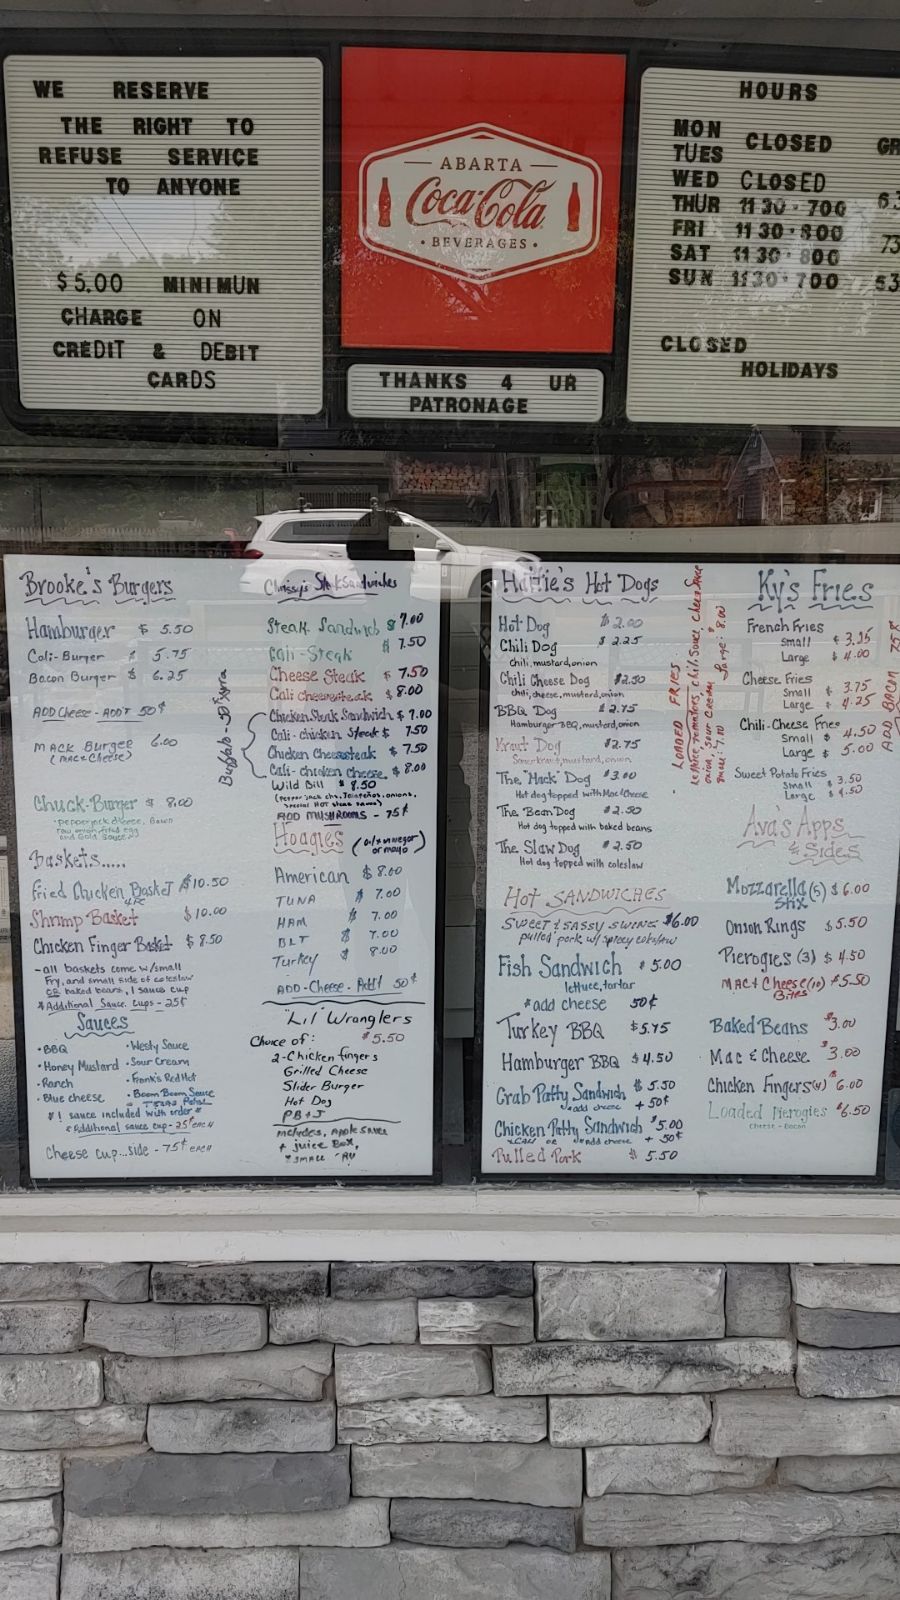 WE RESERVE
THE RIGHT TO
REFUSE SERVICE
TO ANYONE
$5.00 MINIMUN
CHARGE ON
CREDIT & DEBIT
CARDS
ABARTA
Coca-Cola
• BEVERAGES •
THANKS 4 UR
PATRONAGE
HOURS
MON
TUES CLOSED
WED CLOSED
THUR 11 30 - 7 00
FRI 11 30 - 8 00
SAT 11 30 - 8 00
SUN 11 30 - 7 00
CLOSED
HOLIDAYS
GR
63
73
53
Brooke's Burgers
Hamburger $ 5.50
Cali-Burger $ 5.75
Bacon Burger $ 6.25
ADD Cheese - ADD'T 50¢
MACK Burger 6.00
(mac+cheese)
Chuck-Burger $ 8.00
pepperjack cheese, Bacon
raw onion fried egg
and Gold Sauce
Baskets.....
Fried Chicken Basket $10.50
4 PC
Shrimp Basket $10.00
Chicken Finger Basket $ 8.50
- all baskets come w/small
Fry, and small side of coleslaw
OR baked beans, 1 sauce cup
*Additional Sauce Cups - 25¢
Sauces
• BBQ • Westy Sauce
• Honey Mustard • Sour Cream
• Ranch • Frank's Red Hot
• Blue cheese • Boom Boom Sauce
• Texas Petal
* 1 sauce included with order *
*Additional sauce cup - 25¢ each
Cheese cup...side - 75¢ each
Chrissy's Steak Sandwiches
Steak Sandwich $ 7.00
Cali-Steak $ 7.50
Cheese Steak $ 7.50
Cali cheesesteak $ 8.00
Buffalo - 50¢ Xtra
Chicken Steak Sandwich $ 7.00
Cali-chicken Steak $ 7.50
Chicken Cheesesteak $ 7.50
Cali-chicken Cheese $ 8.00
Wild Bill $ 8.50
(Pepper jack chs, Jalapeños, onions,
special Hot steak sauce)
ADD MUSHROOMS - 75¢
Hoagies (oil+vinegar
or mayo)
American $ 8.00
TUNA $ 7.00
HAM $ 7.00
BLT $ 7.00
Turkey $ 8.00
ADD-Cheese-Add't 50¢
"Lil" Wranglers
Choice of: $5.50
2-Chicken fingers
Grilled Cheese
Slider Burger
Hot Dog
PB+J
includes, Apple sauce
+ juice Box,
*small
Hattie's Hot Dogs
Hot Dog $ 2.00
Chili Dog $ 2.25
chili, mustard, onion
Chili Cheese Dog $2.50
chili, cheese, mustard, onion
BBQ Dog $ 2.75
Hamburger BBQ, mustard, onion
Kraut Dog $2.75
Sauerkraut, mustard, onion
The "Mack" Dog $3.00
Hot dog topped with Mac+Cheese
The Bean Dog $2.50
Hot dog topped with baked beans
The Slaw Dog $ 2.50
Hot dog topped with coleslaw
Hot SANDWICHES
SWEET & SASSY SWINE $6.00
pulled pork w/ spicy coleslaw
Fish Sandwich $ 5.00
lettuce, tartar
*add cheese 50¢
Turkey BBQ $5.75
Hamburger BBQ $4.50
Crab Patty Sandwich $ 5.50
*add cheese + 50¢
Chicken Patty Sandwich $5.00
*add cheese + 50¢
Pulled Pork $ 5.50
LOADED FRIES -
Lettuce, tomatoes, chili sauce, cheese sauce
onion, sour cream
small: 7.00 Large: 8.00
Ky's Fries
French Fries
small $ 3.25
Large $ 4.00
Cheese Fries
Small $ 3.75
Large $ 4.25
Chili-Cheese Fries
Small $ 4.50
Large $ 5.00
ADD BACON 75¢
Sweet Potato Fries
Small $ 3.50
Large $ 4.50
Ava's Apps
& Sides
Mozzarella (5) $ 6.00
Stix
Onion Rings $5.50
Pierogies (3) $ 4.50
MAC+Cheese (10) $5.50
Bites
Baked Beans $3.00
Mac & Cheese $3.00
Chicken Fingers (4) $6.00
Loaded Pierogies $6.50
cheese - Bacon